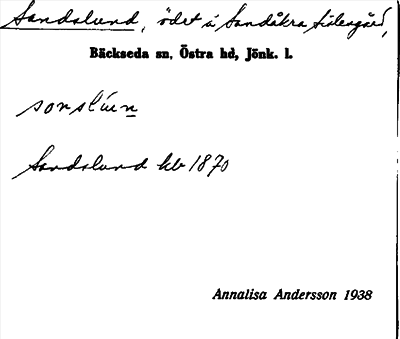 Sandslund, ödet å Sandåkra
Bäckseda sn, Östra hd, Jönk. l.
Sandslund hb 1870
Annalisa Andersson 1938